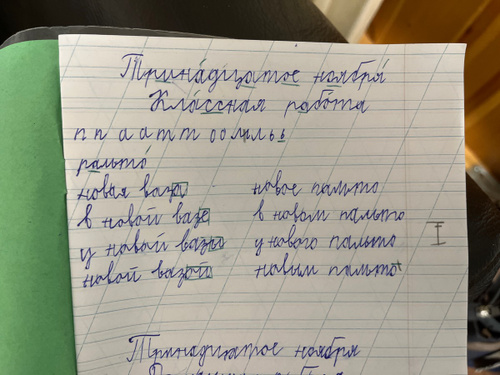 Тринадцатое ноября
Классная работа
п п а а т т о о л л ь ь
пальто
новая ваза новое пальто
в новой вазе в новом пальто
у новой вазы у нового пальто
новой вазой новым пальто
I
Тринадцатое ноября